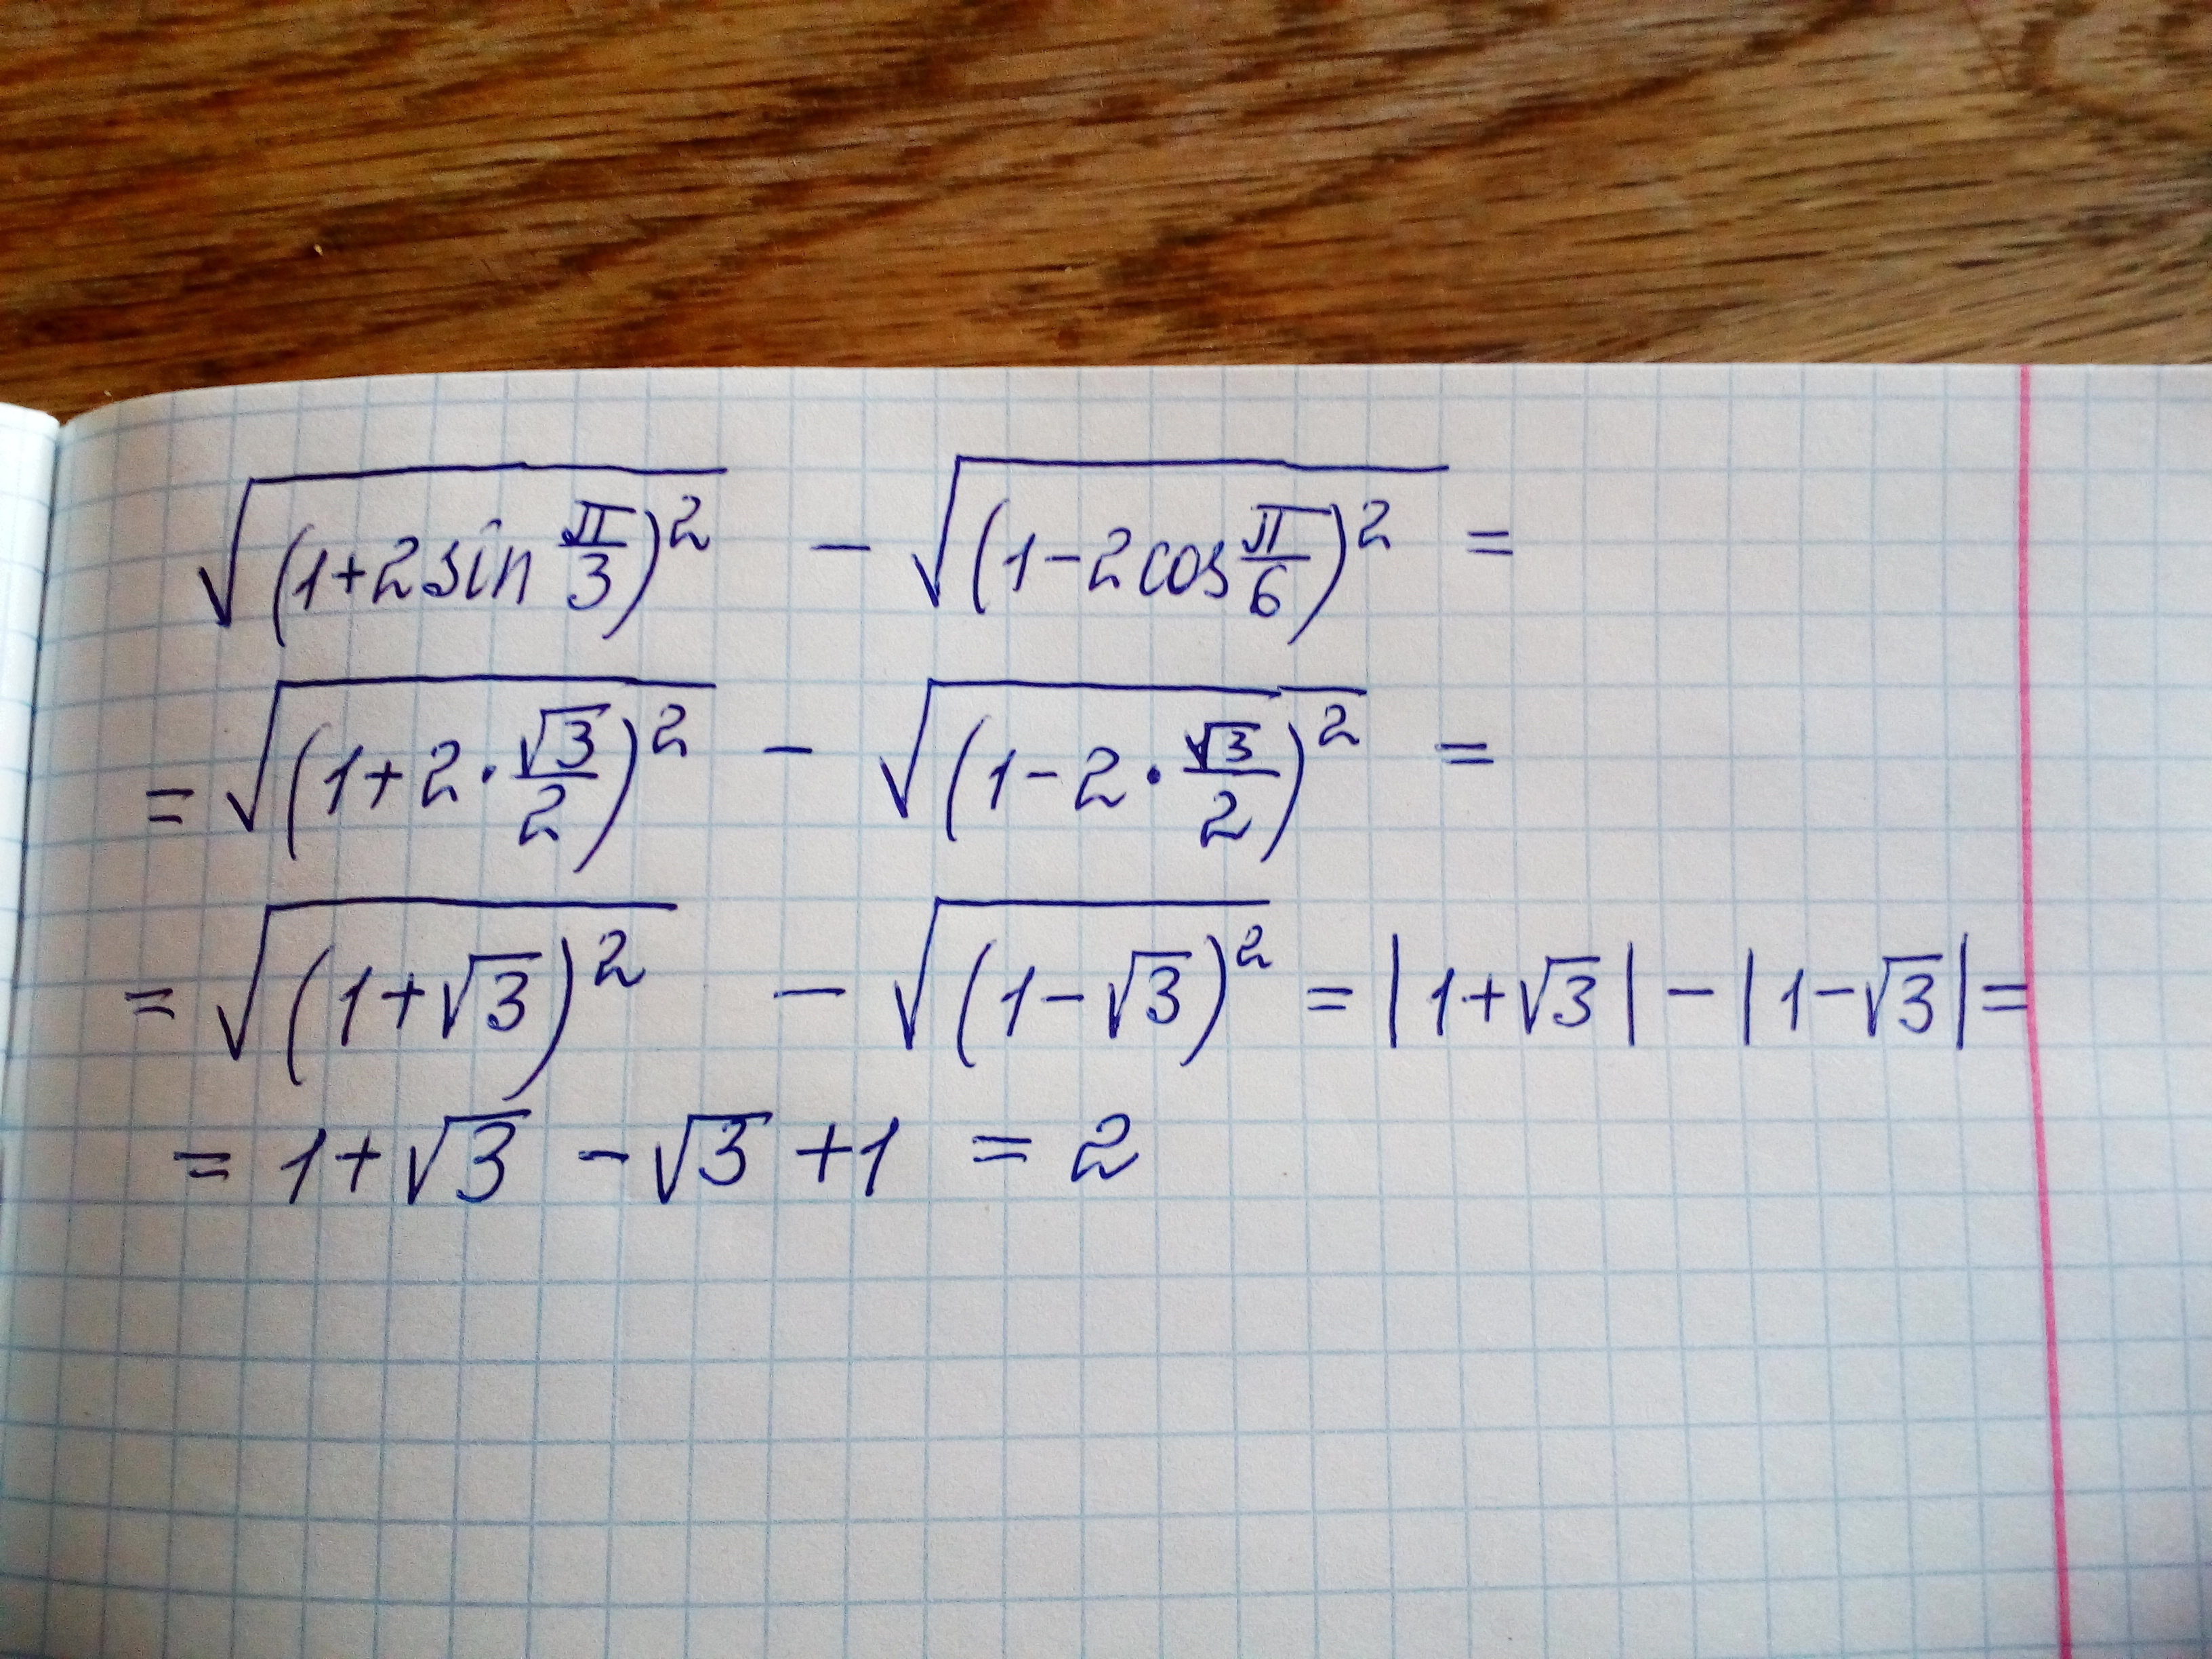 √((1+2sin π/3)²) − √((1−2cos π/6)²) =
= √((1+2·√3/2)²) − √((1−2·√3/2)²) =
= √((1+√3)²) − √((1−√3)²) = |1+√3| − |1−√3| =
= 1+√3 − √3 +1 = 2